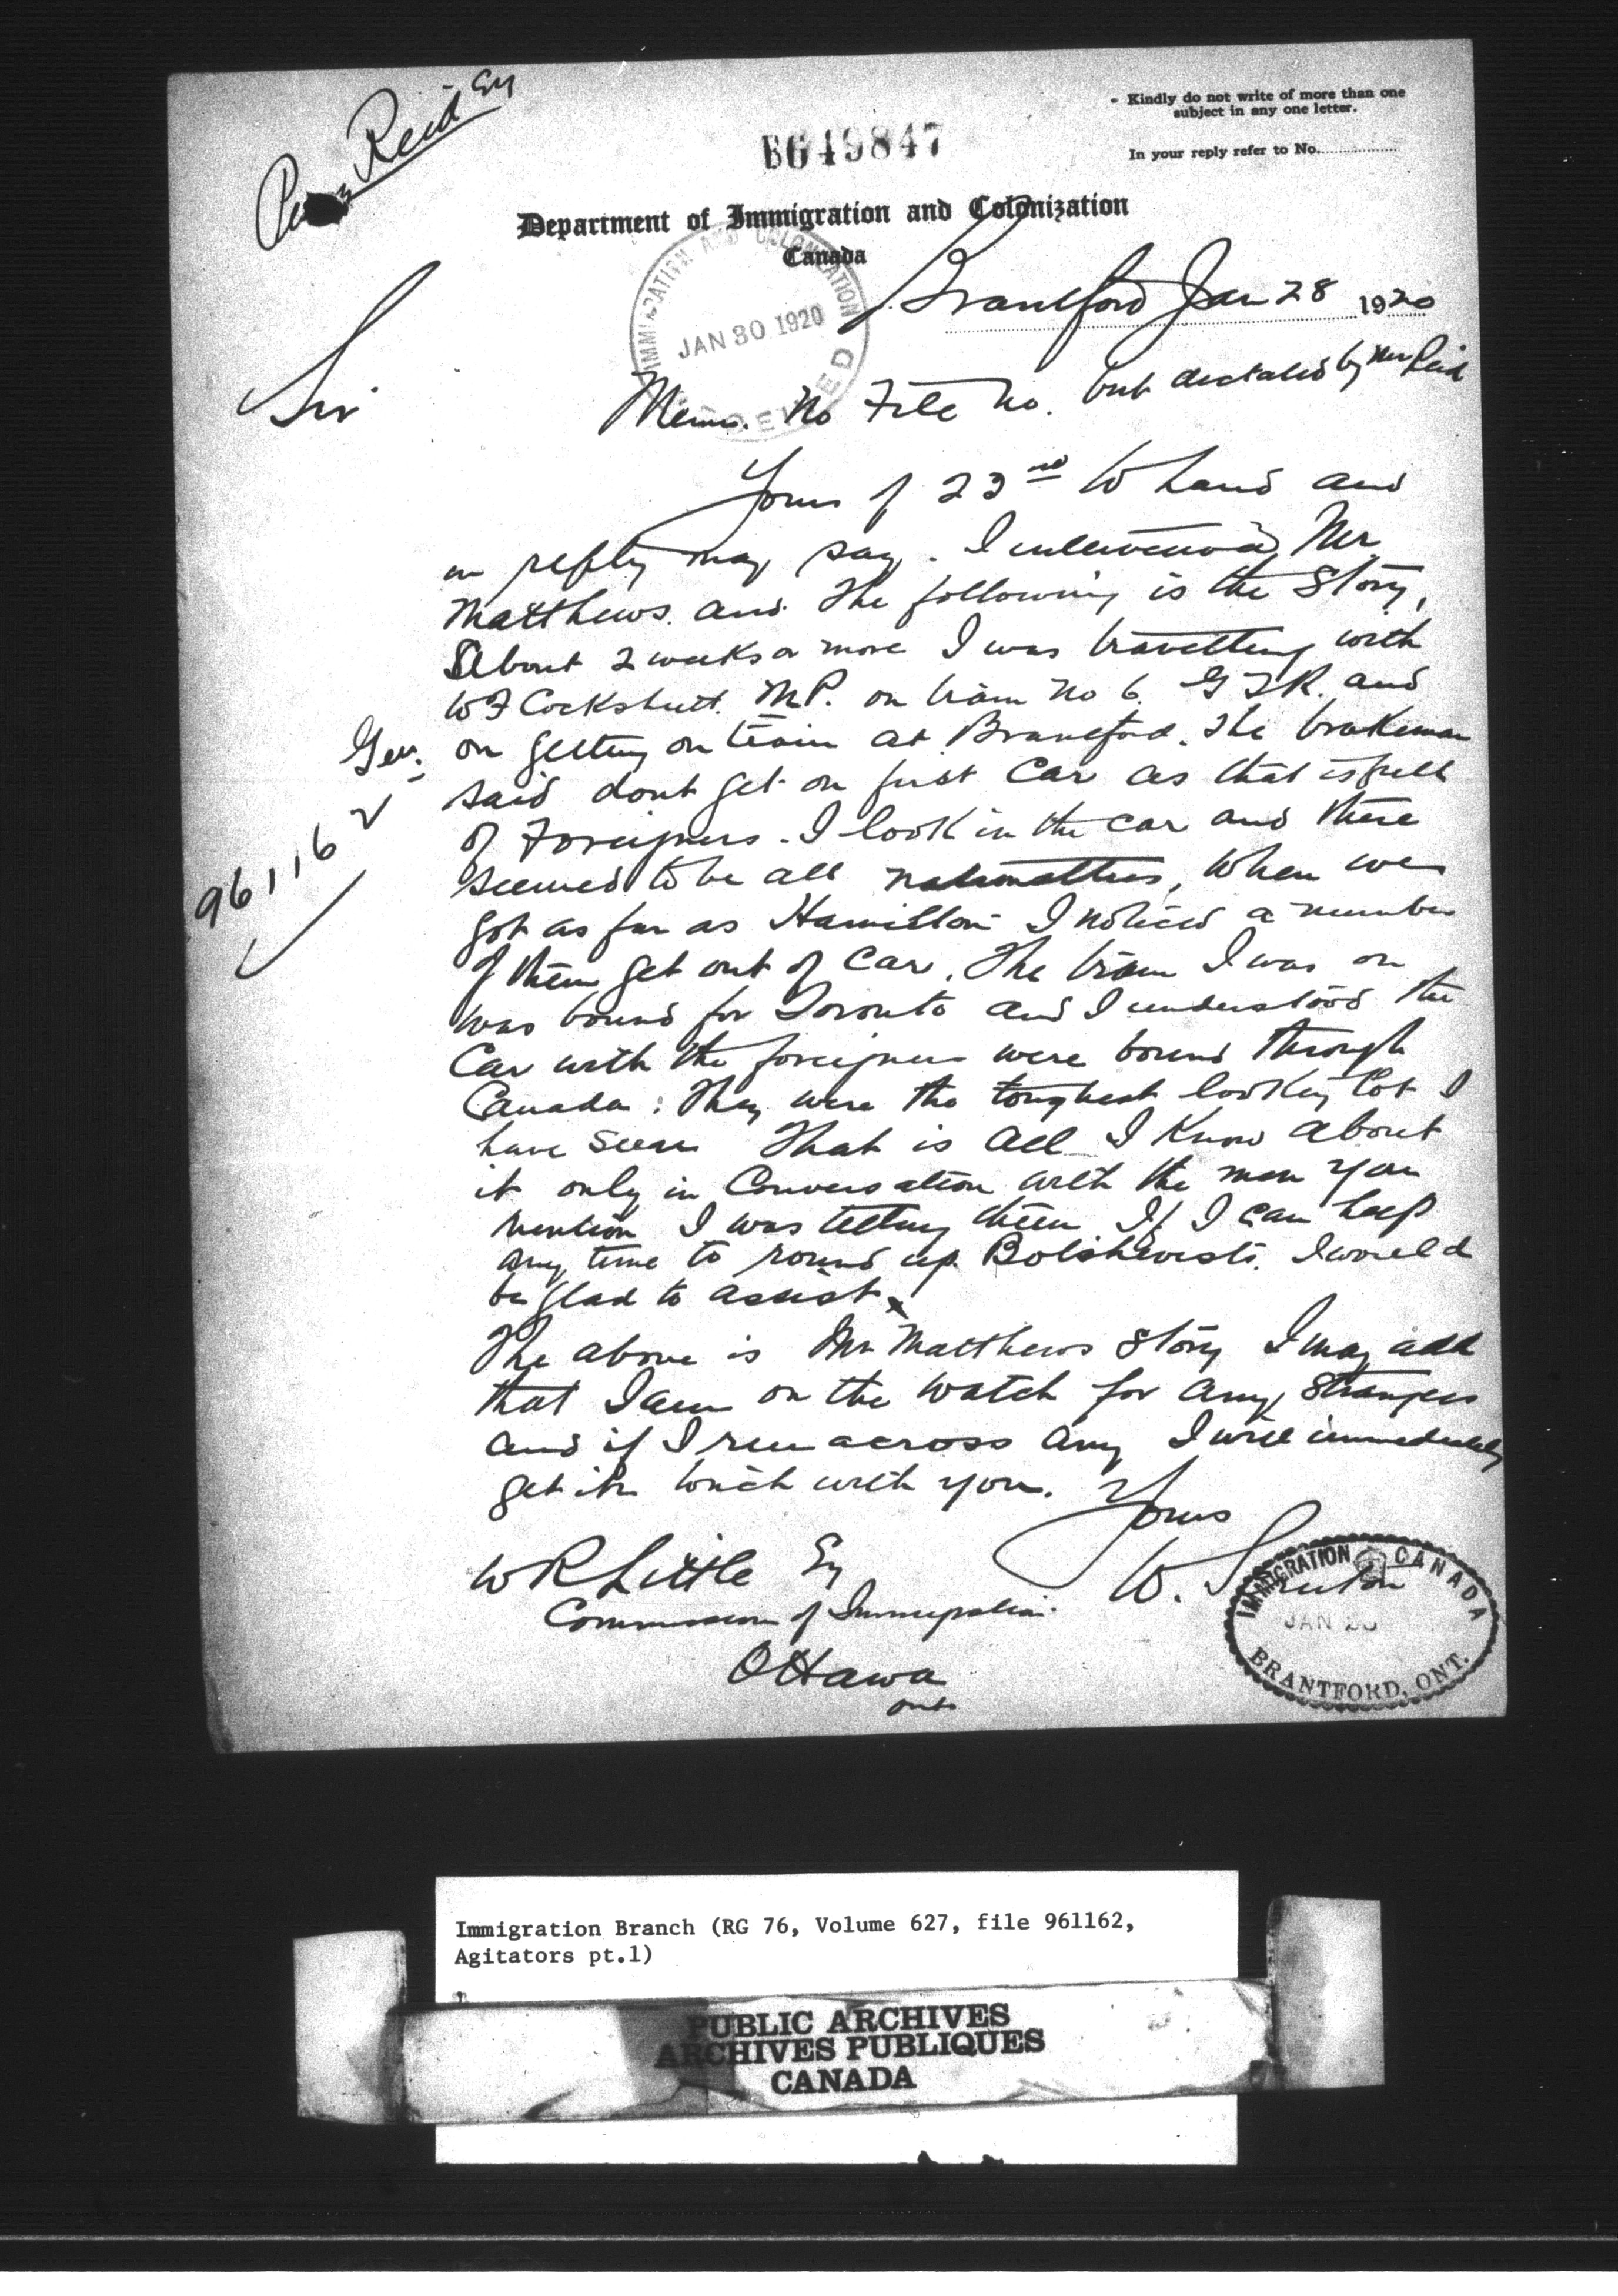 Reid Esq
- Kindly do not write of more than one
subject in any one letter.
In your reply refer to No.
649847
Department of Immigration and Colonization
Canada
IMMIGRATION AND COLONIZATION
JAN 30 1920
RECEIVED
Brantford Jan 28 1920
Sir
Memo. No File No. but dictated by Mr Reid
Yours of 23rd to hand and
in reply may say. I interviewed Mr
Matthews. and the following is the Story,
About 2 weeks or more I was travelling with
W F Cockshutt. M.P. on train No 6. G T R. and
on getting on train at Brantford. the brakeman
said dont get on first Car as that is full
of Foreigners. I look in the car and there
seemed to be all nationalties, when we
got as far as Hamilton I noticed a number
of them get out of Car. The train I was on
was bound for Toronto and I understood the
Car with the foreigners were bound through
Canada: They were the toughest looking lot I
have seen That is all I know about
it only in Conversation with the men you
mention I was telling them If I can help
any time to round up Bolshevists. I would
be glad to assist.
The above is Mr Matthews Story I may add
that I am on the watch for any strangers
and if I run across any I will immediately
get in touch with you.
Yours
W.
W R Little Esq
of Immigration.
Ottawa
Ont
961162
IMMIGRATION CANADA
JAN
BRANTFORD, ONT.
Immigration Branch (RG 76, Volume 627, file 961162,
Agitators pt.1)
PUBLIC ARCHIVES
ARCHIVES PUBLIQUES
CANADA